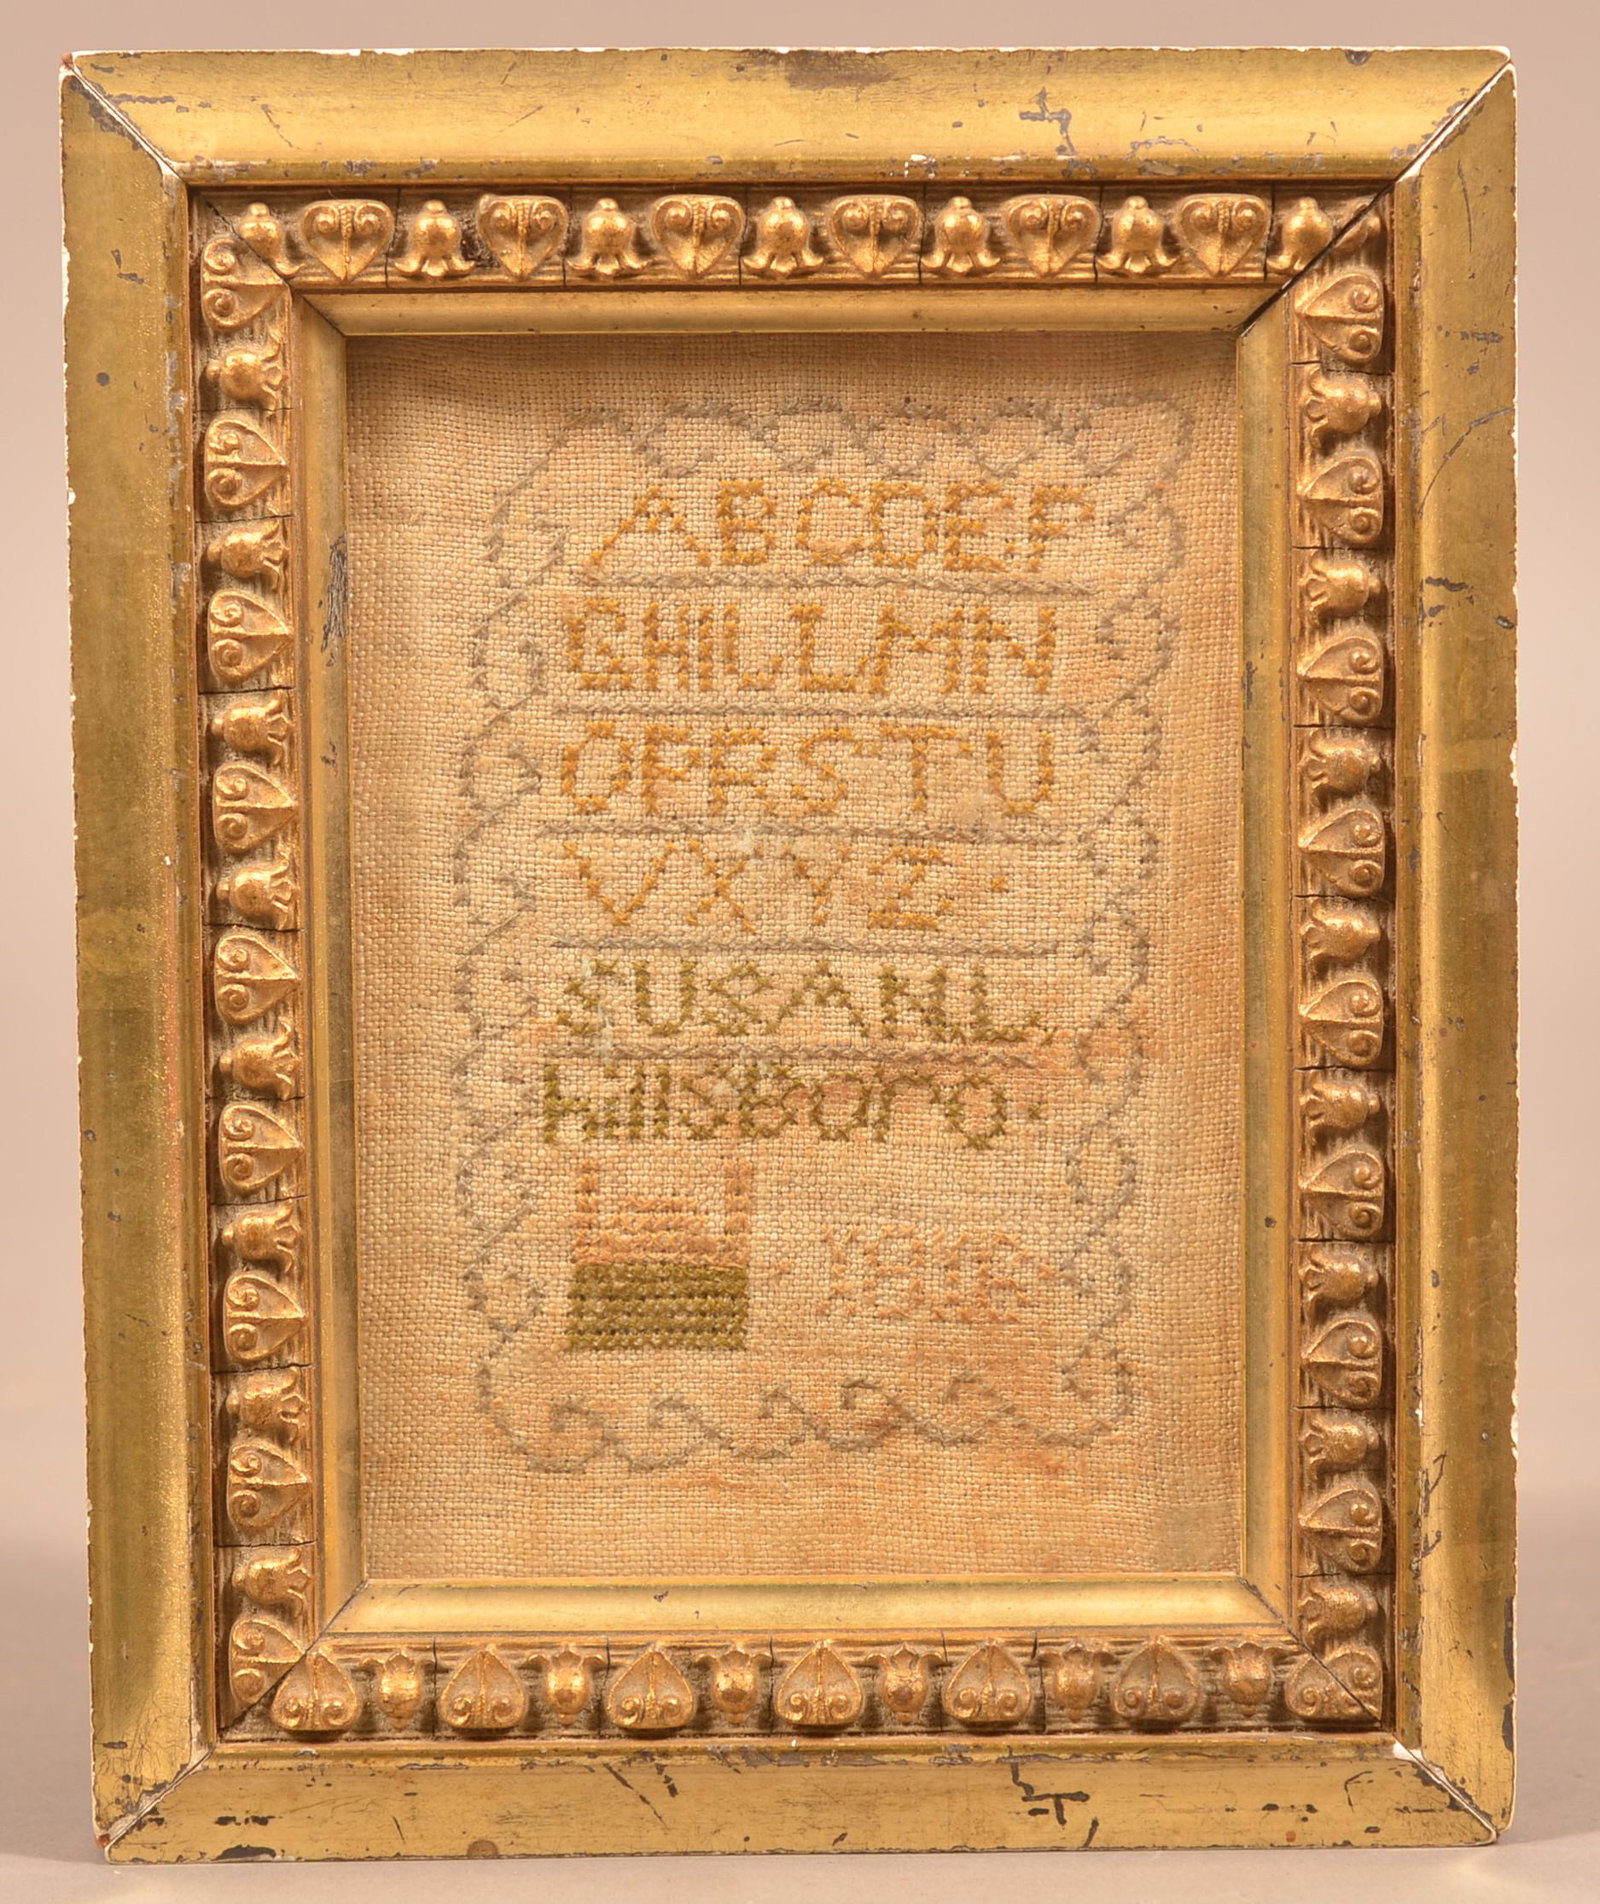 ABCDEF
GHIKLMN
OPRSTU
VXYZ.
SUSAN L,
hillsboro.
1816